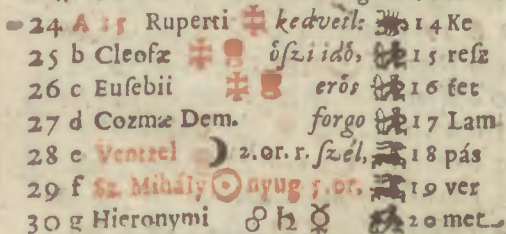 24 A 15 Ruperti kedvetl: 14 Ke
25 b Cleofæ őſzi idő, 15 reſz
26 c Euſebii erős 16 tet
27 d Cozmæ Dem. forgo 17 Lam
28 e Ventzel ☽ 2.or. r. ſzél, 18 pás
29 f Sz. Mihály ☉ nyug 5. or, 19 ver
30 g Hieronymi ♂ ♄ ☿ 20 met